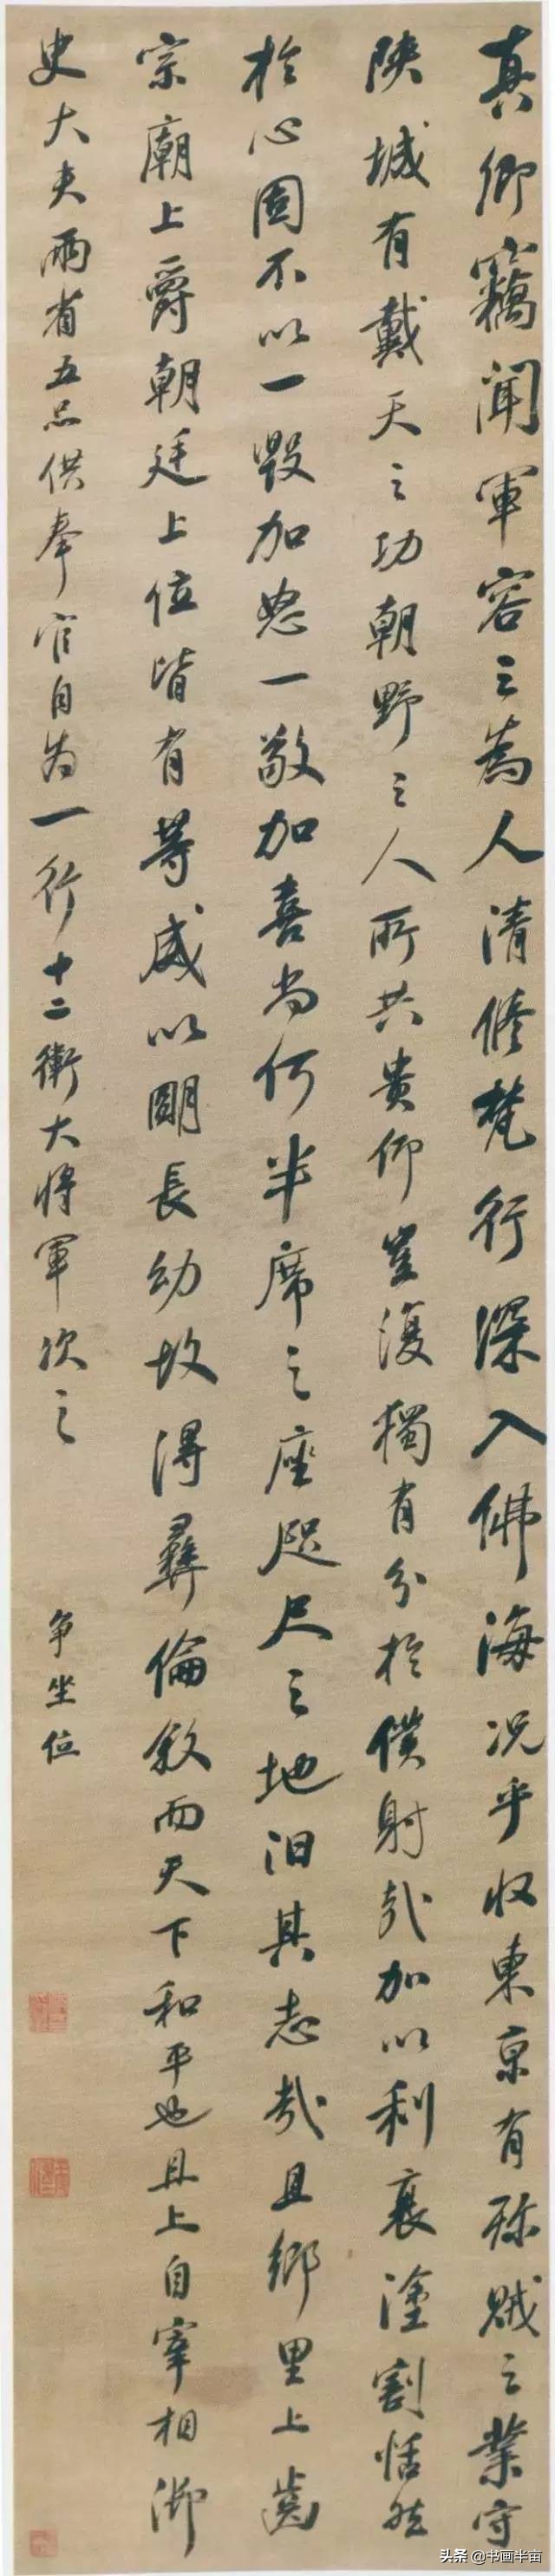 真卿竊聞軍容之為人清修梵行深入佛海況乎收東京有殄賊之業守
陝城有戴天之功朝野之人所共貴仰豈復獨有分於僕射哉加以利衰塗割恬然
於心固不以一毀加怒一敬加喜尚何半席之座咫尺之地汨其志哉且鄉里上齒
宗廟上爵朝廷上位皆有等威以明長幼故得彝倫敘而天下和平也且上自宰相御
史大夫兩省五品供奉官自為一行十二衛大將軍次之
争坐位
头条 @书画半亩